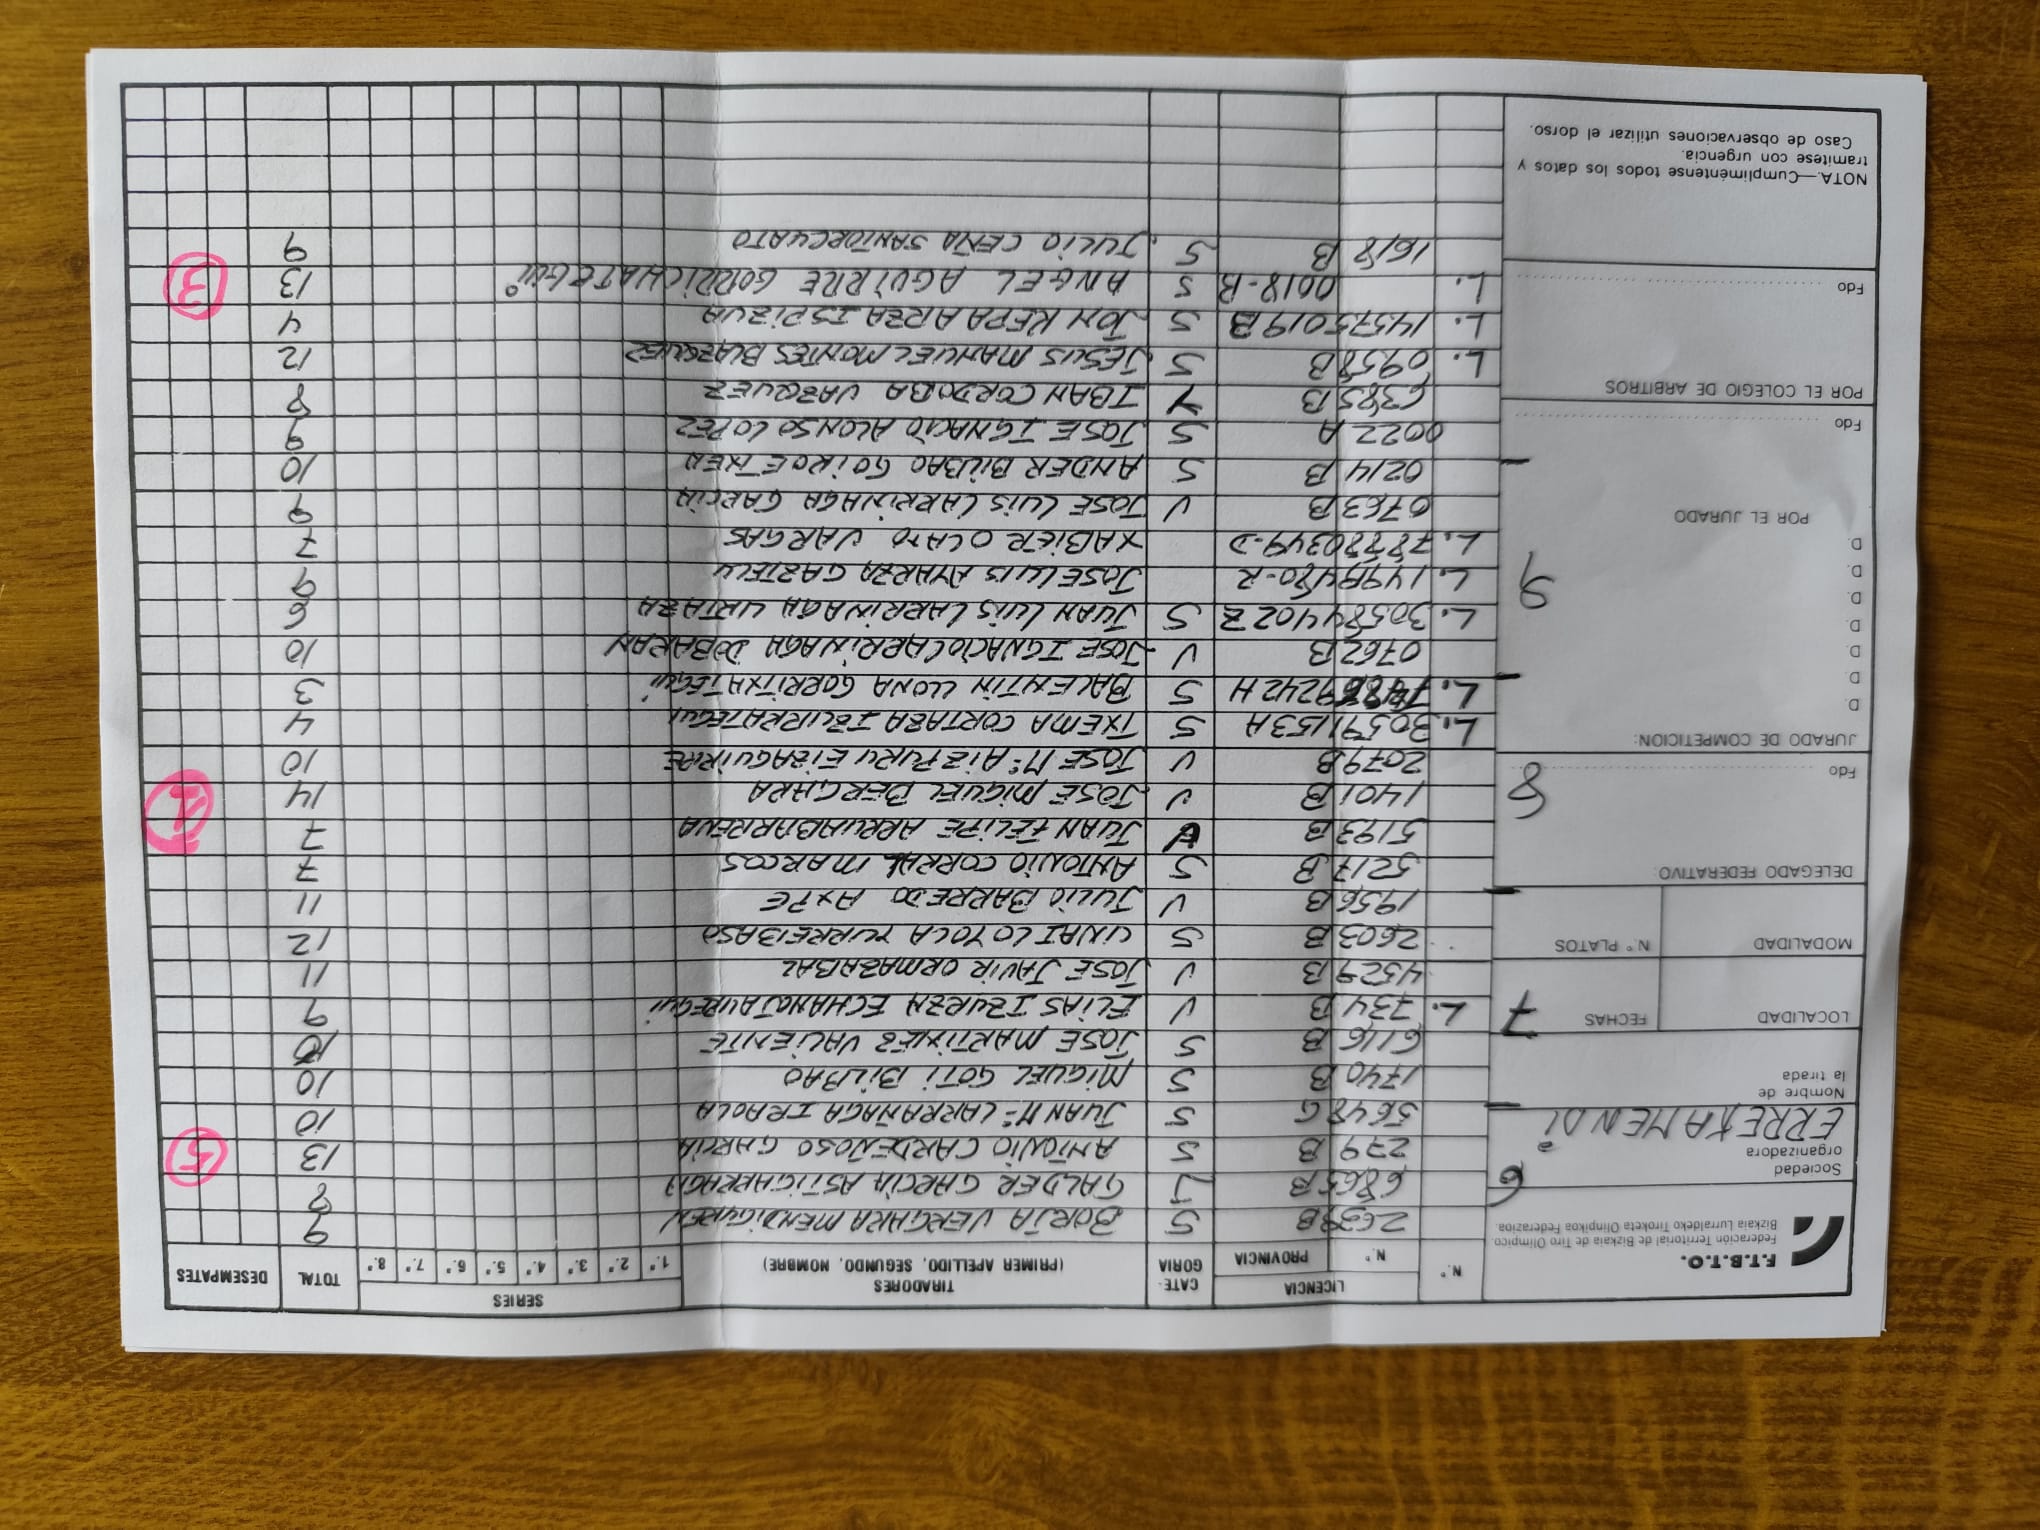 F.T.B.T.O.
Federación Territorial de Bizkaia de Tiro Olímpico.
Bizkaia Lurraldeko Tiroketa Olinpikoa Federazioa.
Sociedad organizadora
ERREKAMENDI
6
Nombre de la tirada
LOCALIDAD FECHAS
7
MODALIDAD N.º PLATOS
DELEGADO FEDERATIVO:
8
Fdo
JURADO DE COMPETICION:
D.
D.
D.
D.
D.
D.
D.
9
POR EL JURADO
Fdo
POR EL COLEGIO DE ARBITROS
Fdo
NOTA.—Cumpliméntense todos los datos y
tramítese con urgencia.
Caso de observaciones utilizar el dorso.
N.º LICENCIA N.º PROVINCIA CATE-GORIA TIRADORES (PRIMER APELLIDO, SEGUNDO, NOMBRE) SERIES 1.ª 2.ª 3.ª 4.ª 5.ª 6.ª 7.ª 8.ª TOTAL DESEMPATES
B S BORJA VERGARA MENDIGUREN 9
6865 B J GALDER GARCIA ASTIGARRAGA 8
279 B S ANTONIO CARDEÑOSO GARCIA 13 5
5648 G S JUAN Mº LARRAÑAGA IRAOLA 10
1740 B S MIGUEL GOTI BILBAO 10
6116 B S JOSE MARTINEZ VALIENTE 10
L. 734 B V ELIAS IZURZA ECHANOJAUREGUI 9
4529 B V JOSE JAVIR ORMAZABAL 11
2603 B S UNAI LOYOLA YURREBASO 12
1956 B V JULIO BARREDO AXPE 11
5217 B S ANTONIO CORRAL MARCOS 7
5193 B JUAN FELIPE ARRIABARRENA 7
1401 B V JOSE MIGUEL BERGARA 14
2079 B V JOSE Mº AIZPURU EIZAGUIRRE 10
L. 30591153A S TXEMA CORTAZA IZCURRATEGUI 4
L. S BALENTIN LLONA GORRITXATEGUI 3
0762 B V JOSE IGNACIO LARRINAGA DOBARAN 10
L. 30584402Z S JUAN LUIS LARRINAGA URIAZA 6
L. JOSE LUIS AYARZA GAZTELU 9
L. XABIER OCAÑO VARGAS 7
0763 B V JOSE LUIS LARRINAGA GARCIA 9
0214 B S ANDER BILBAO GOIKOETXEA 10
0022 A S JOSE IGNACIO ALONSO LOPEZ 9
6385 B IBAN CORDOBA VAZQUEZ 8
L. 0958 B S JESUS MANUEL MONTES BLAZQUEZ 12
L. 14575019B S JON KEPA ARZA ISPIZUA 4
L. 0018-B S ANGEL AGUIRRE GORRICHATEGUI 13 3
1618 B S JULIO CEÑA SANTORCUATO 9